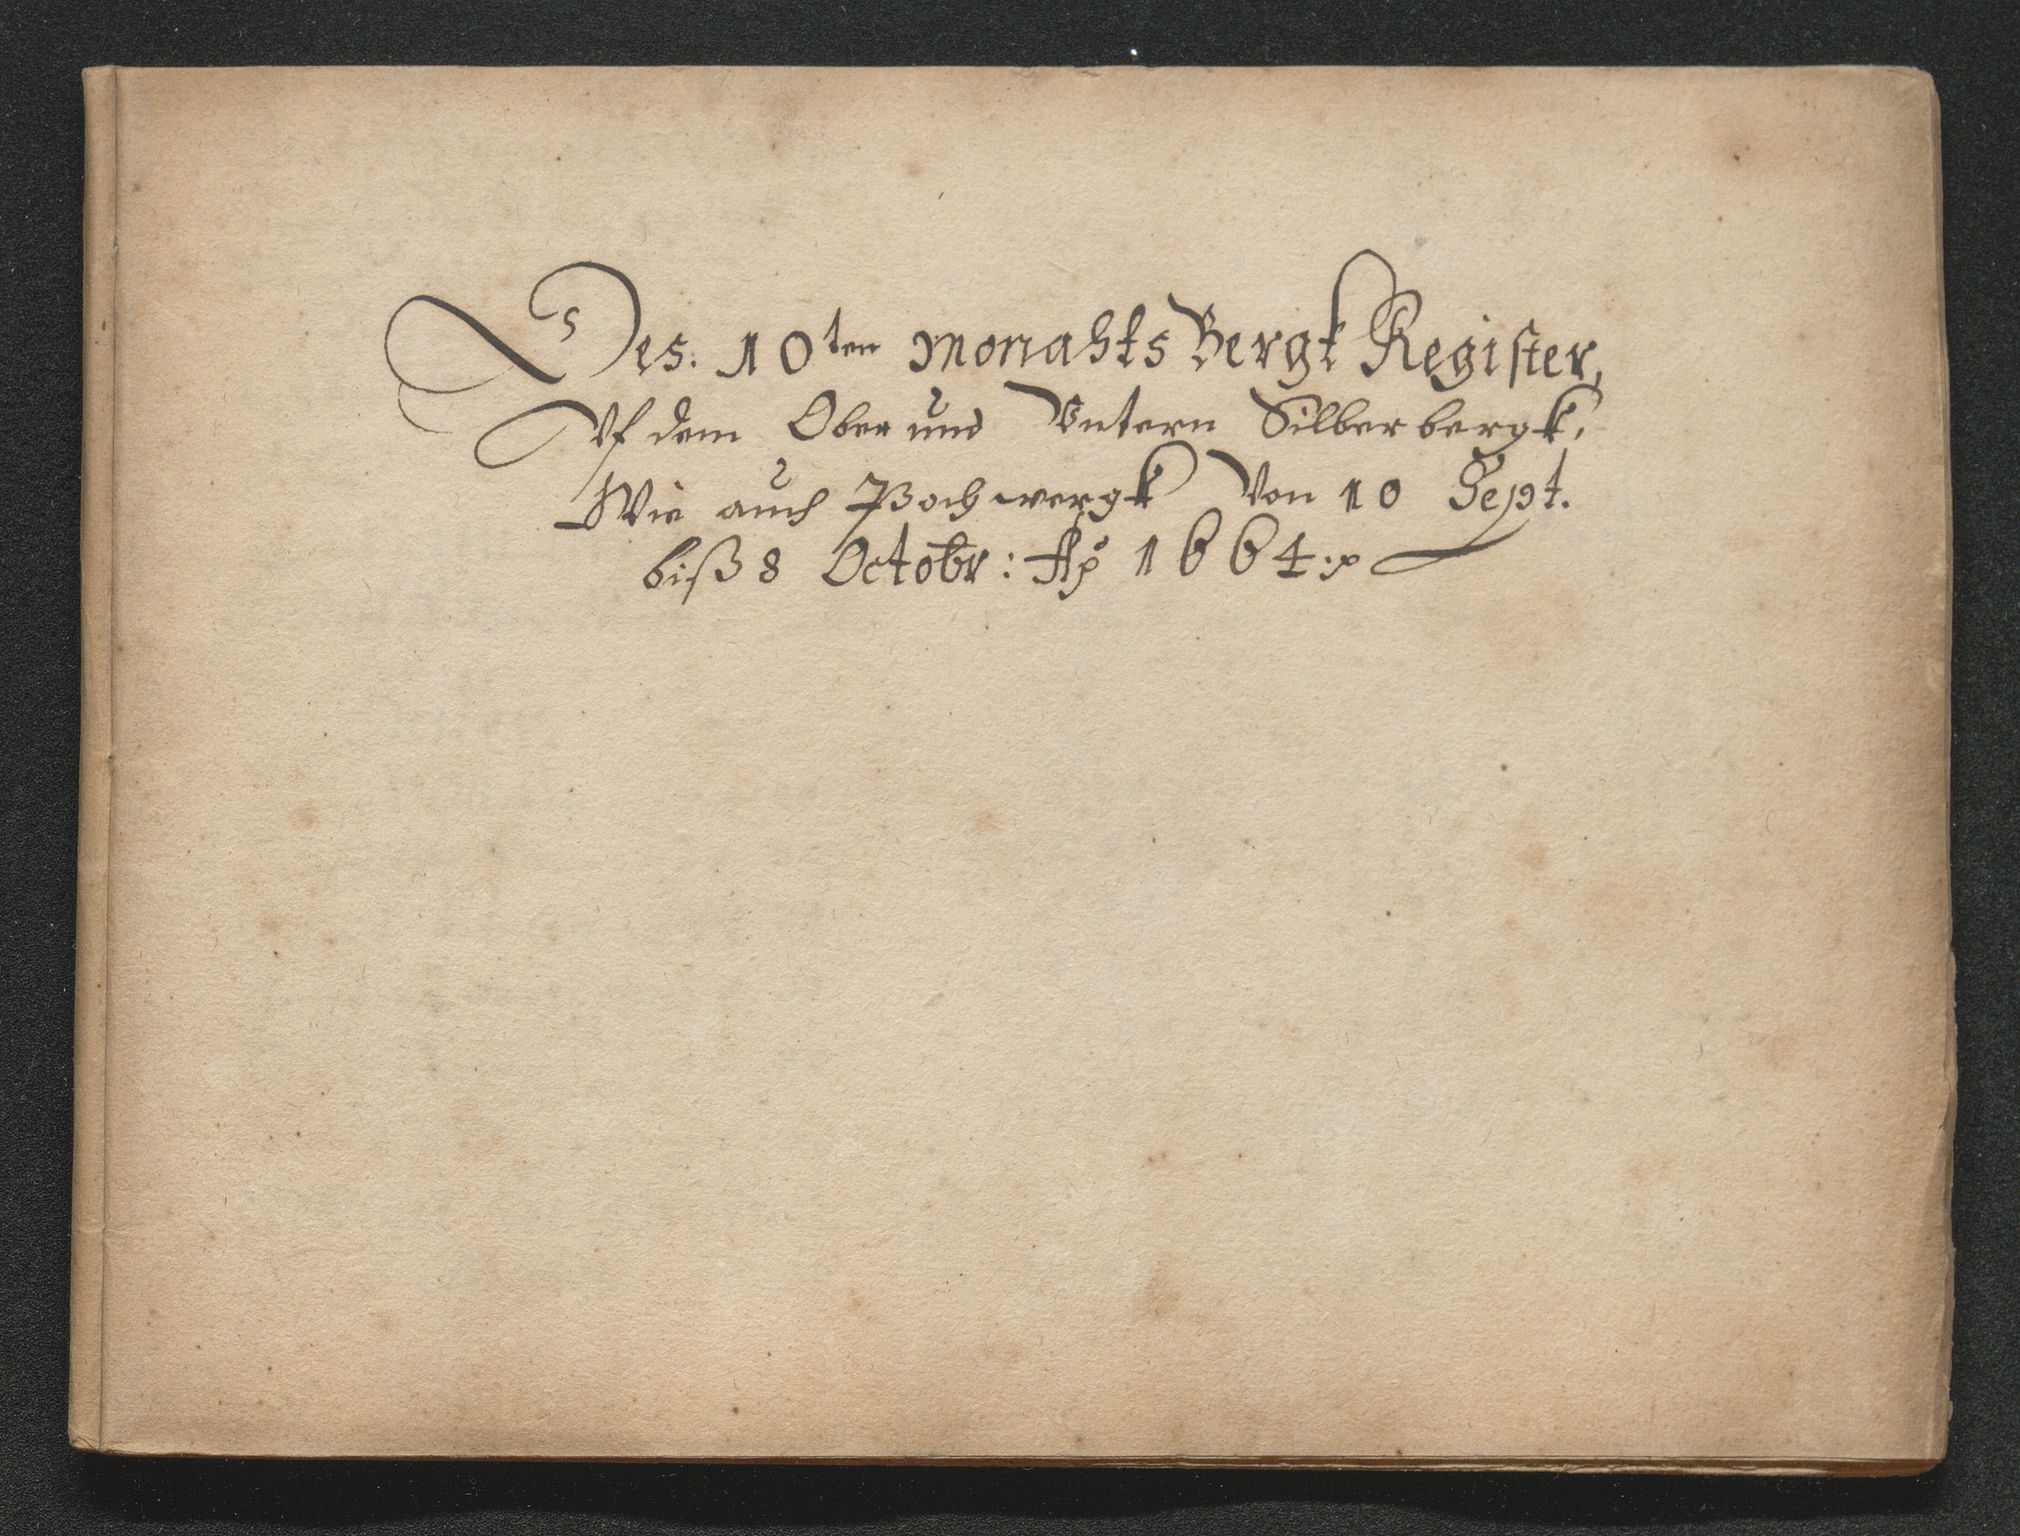 Des. 10ten monahts Bergk Register,
Vf dem Ober und Vntern Silberbergk,
Wie auch Pochwergk Von 10 Sept.
biß 8 Octobr: Ao 1664.